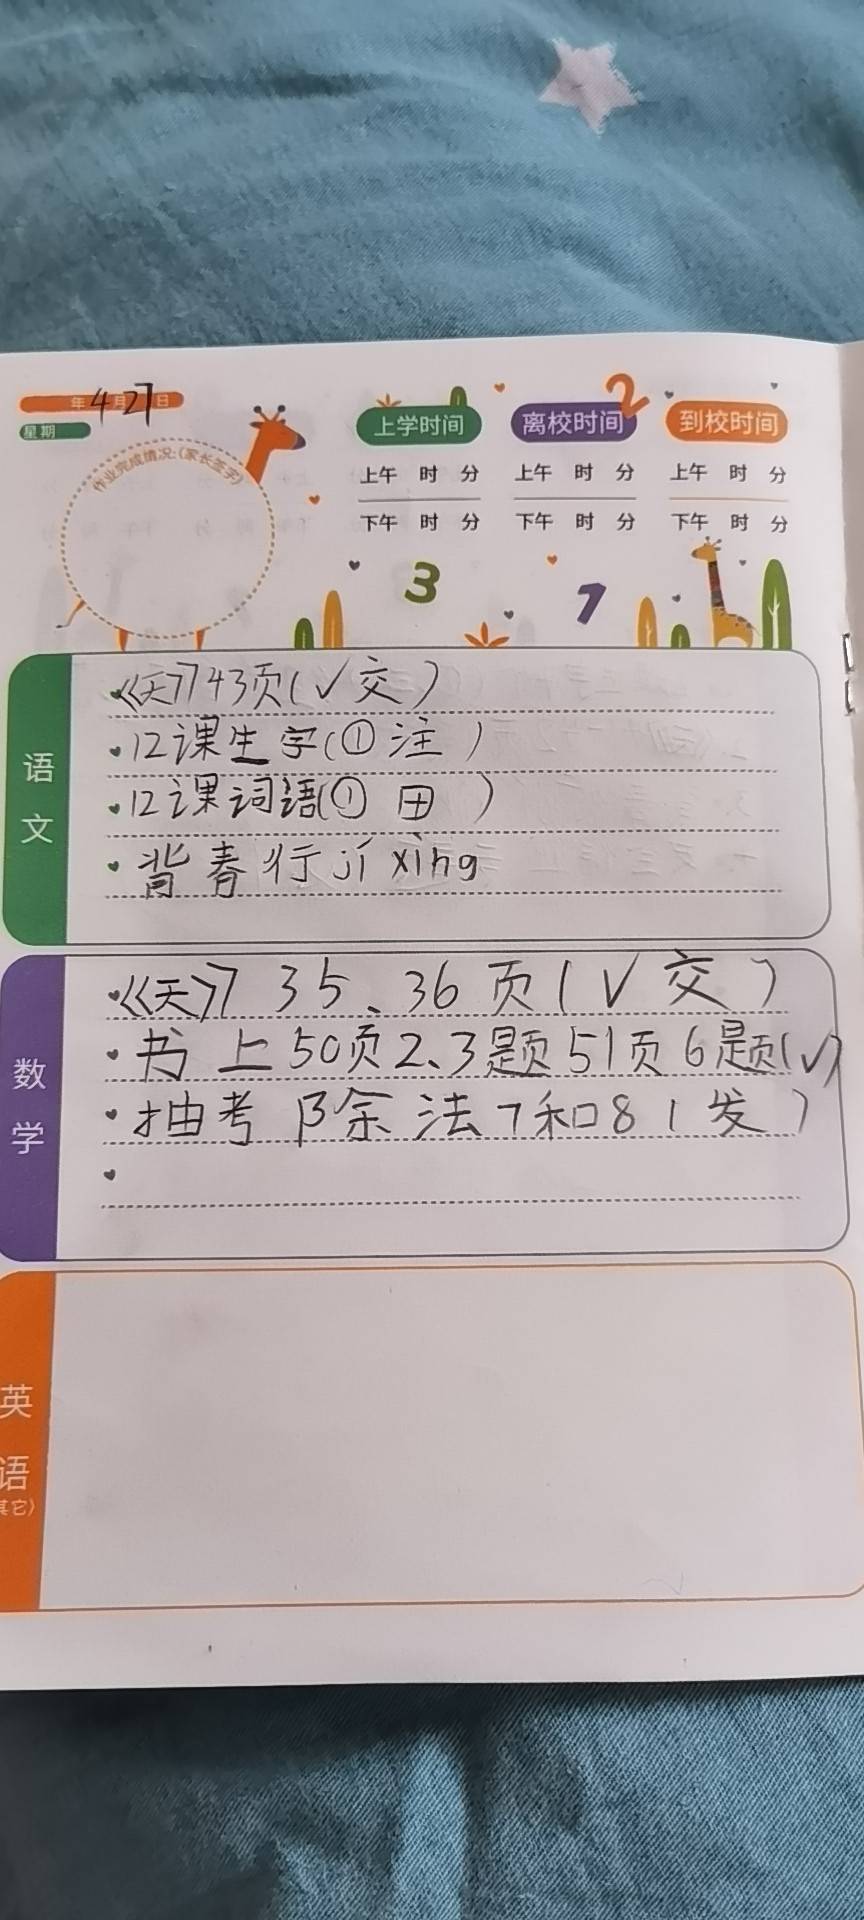 年4月27日
星期
作业完成情况:(家长签字)
上学时间 离校时间 到校时间
2
上午 时 分 上午 时 分 上午 时 分
下午 时 分 下午 时 分 下午 时 分
3 1
语文
《天》43页(√交)
12课生字(①注)
12课词语(①田)
背春行jǐ xìng
数学
《天》35、36页(√交)
书上50页2、3题51页6题(√)
抽考除法7和8(发)
英语
其它)